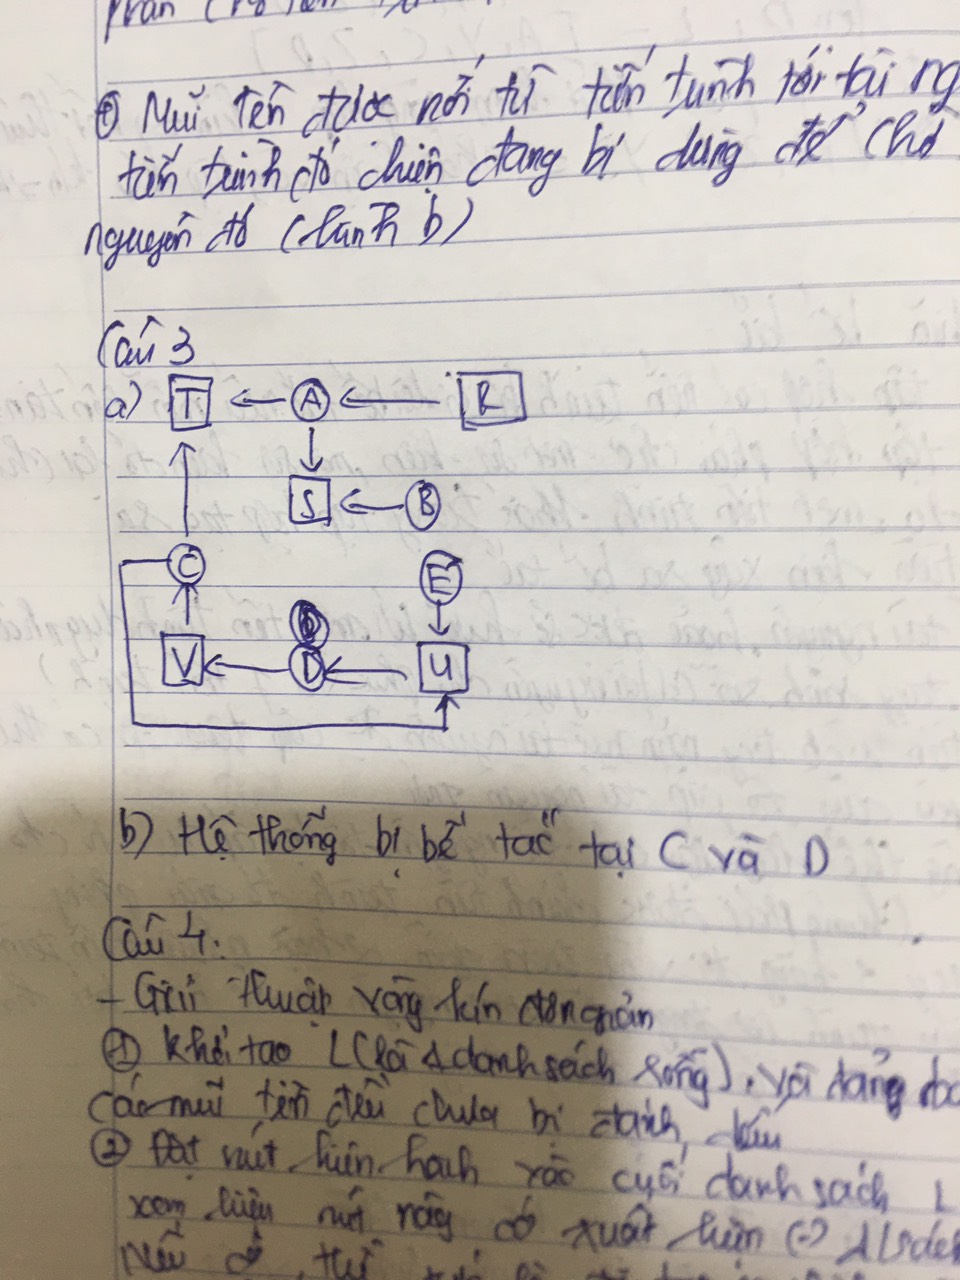 ① Mũi tên được nối từ tiến trình tới tài ng
tiến trình đó hiện đang bị dừng để chờ
nguyên đó (hình b)
Câu 3
a) T A R
S B
C E
V D U
b) Hệ thống bị bế tắc tại C và D
Câu 4:
- Giải thuật vòng kín đơn giản
① Khởi tạo L (là 1 danh sách rỗng), và
Các mũi tên đều chưa bị đánh dấu
② Đặt nút hiện hành vào cuối danh sách L
xem liệu nút này có xuất hiện
Nếu có thì